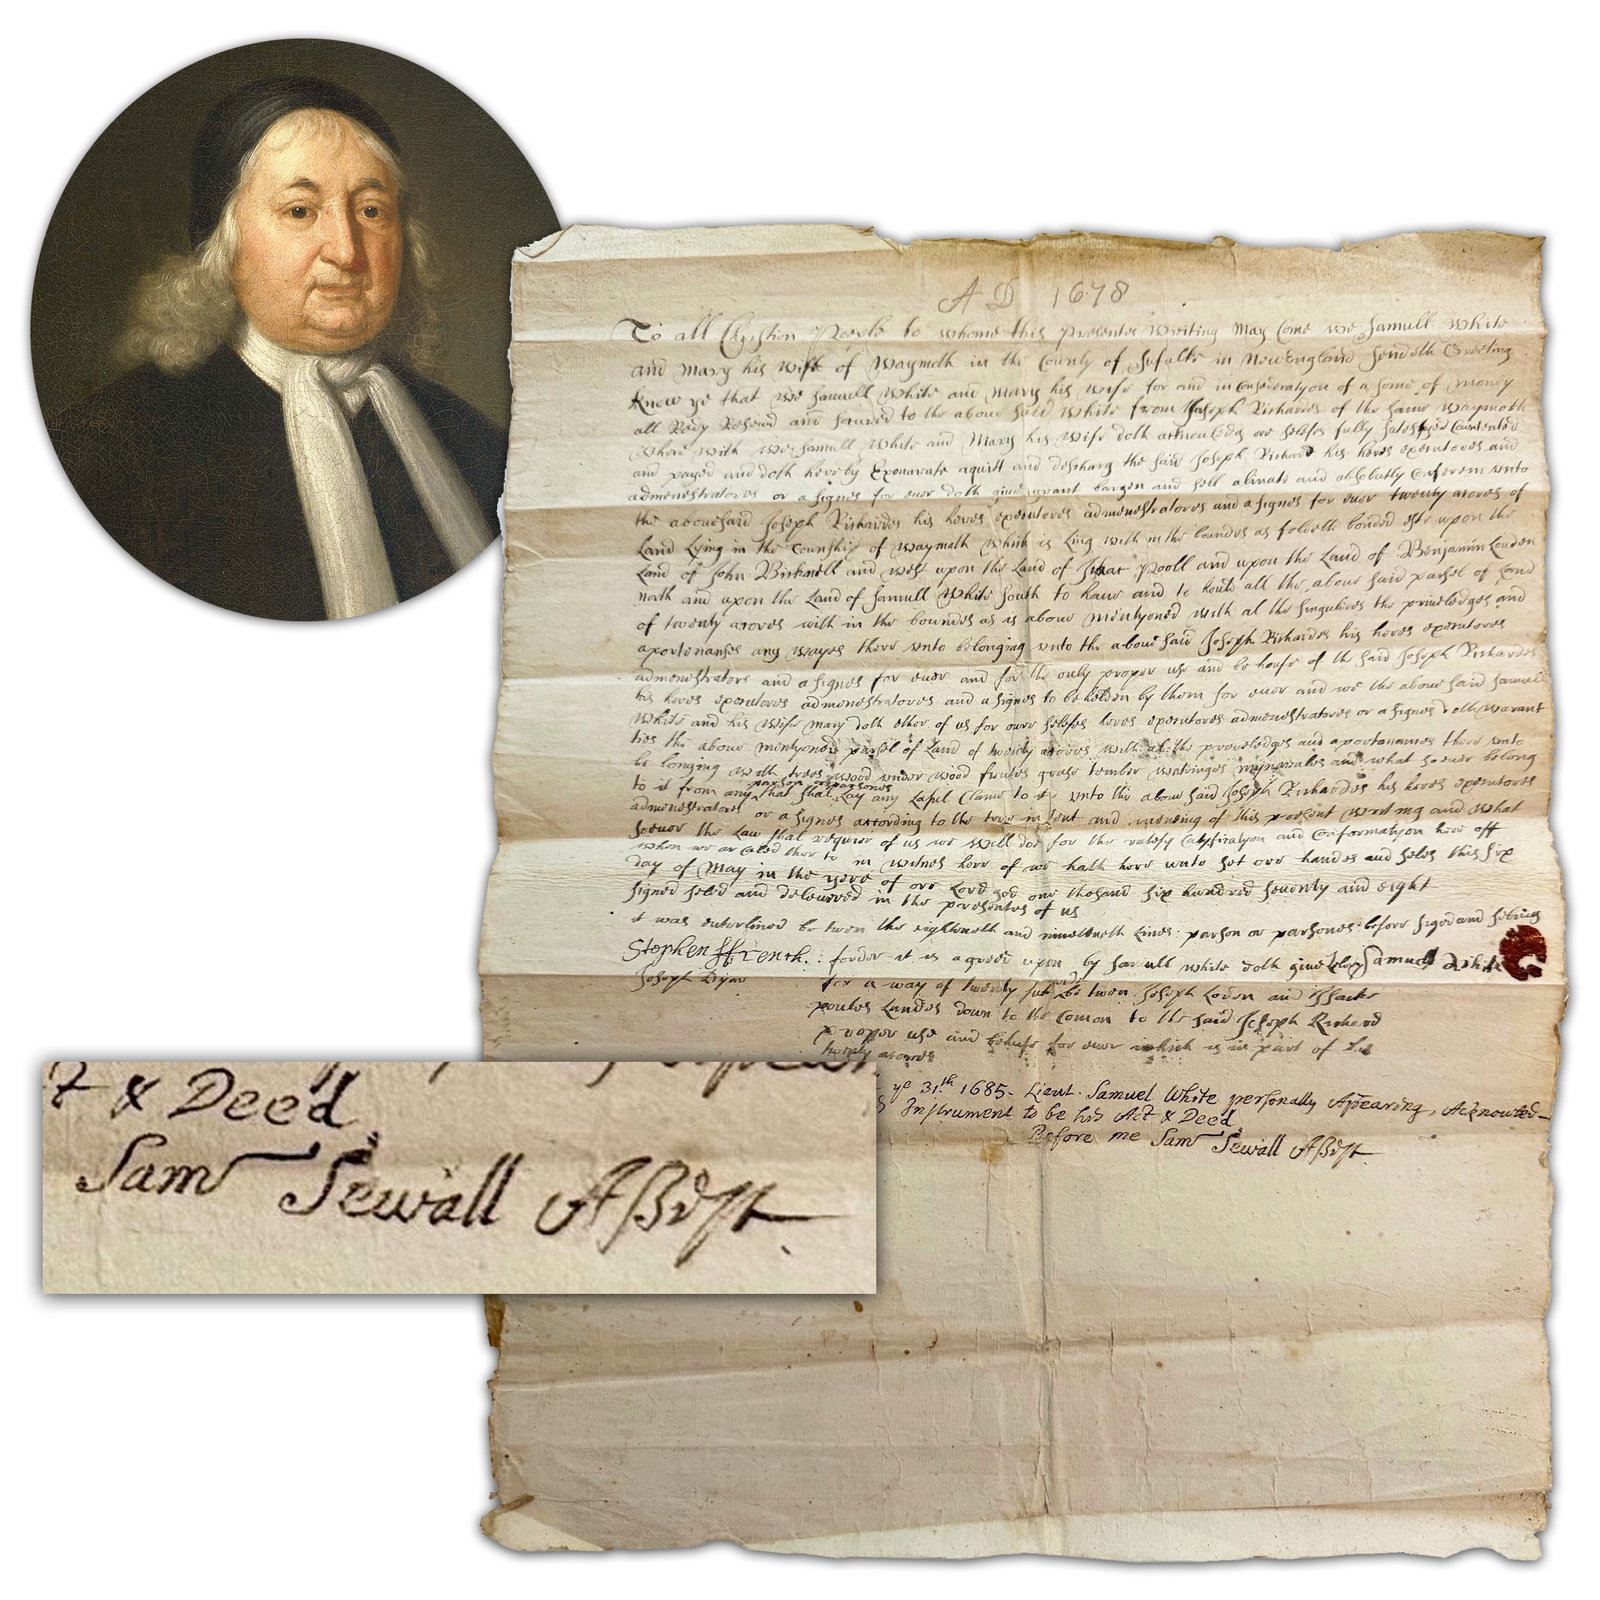 A D 1678
To all Christian People to whome this presentes Writing May Come we Samull White
and Mary his wife of Waymoth in the County of Sufalke in NewEngland sendeth Greeting
Know ye that we Samull White and Mary his wife for and in Consederatyon of a some of Money
all Redy Reseued and secured to the aboue said White from Joseph Richardes of the same Waymoth
Where with We Samull White and Mary his Wife doth acknouledg our selefes fully satesfyed Contented
and payed and doth hereby Exonarate aquitt and descharg the said Joseph Richard his heres executores and
admenestratores or asignes for euer doth giue grant bargen and sell alinate and absolutly Conferem vnto
the abouesaid Joseph Richardes his heres executores admenestratores and asignes for euer twenty acores of
Land Lying in the Township of Waymoth which is Ling with in the boundes as foloeth bonded este upon the
Land of John Bicknell and west upon the Land of Isaac Pooll and upon the Land of Benjamin Louden
north and upon the Land of Samull White south to haue and to hould all the aboue said parsel of Land
of twenty acores with in the boundes as is aboue mentyoned with al the singulires the priueledges and
aportenanses any wayes there vnto belonging vnto the aboue said Joseph Richardes his heres executores
admenestrators and asignes for euer and for the only proper use and be houfe of the said Joseph Richardes
his heres executores admenestratores and asignes to be helden by them for euer and we the aboue said Samuel
White and his Wife mary doth ether of us for oure selefes heres executores admenestratores or asignes doth warant
ties the aboue mentyoned parsel of Land of twenty acores with al the proueledges and aportanances there vnto
be longing with trees wood under wood frutes grase tember watringes mynerales and what so euer belong
parson or parsones
to it from any that shal Lay any Laful Clame to it vnto the aboue said Joseph Richardes his heres executores
admenestrators or asignes according to the true intent and mening of this present writing and what
soeuer the Law shal requier of us we will doe for the ratefy Catyfication and Conformatyon here off
when we ar Caled ther to in witnes here of we hath here unto set our handes and seles this six
day of May in the yere of our Lord god one thosand six hundred seuenty and eight
signed seled and deleuered in the presentes of us
it was enterlined be twen the eightenth and ninetenth Lines: parson or parsones: before signed and seleing
Stephen ffrench: forder it is agreed upon by Samull White doth giue Samuel White
Joseph Dyar for a way of twenty fut be twen Joseph Loden and Isaacke
poules Landes down to the Comon to the said Joseph Richard
proper use and behufe for euer which is in part of the
twenty acores
ye 31th 1685. Lieut. Samuel White personally Apearing, Acknowled-
Instrument to be his Act & Deed
Before me Sam Sewall Assist.
& Deed
Sam Sewall Assist.